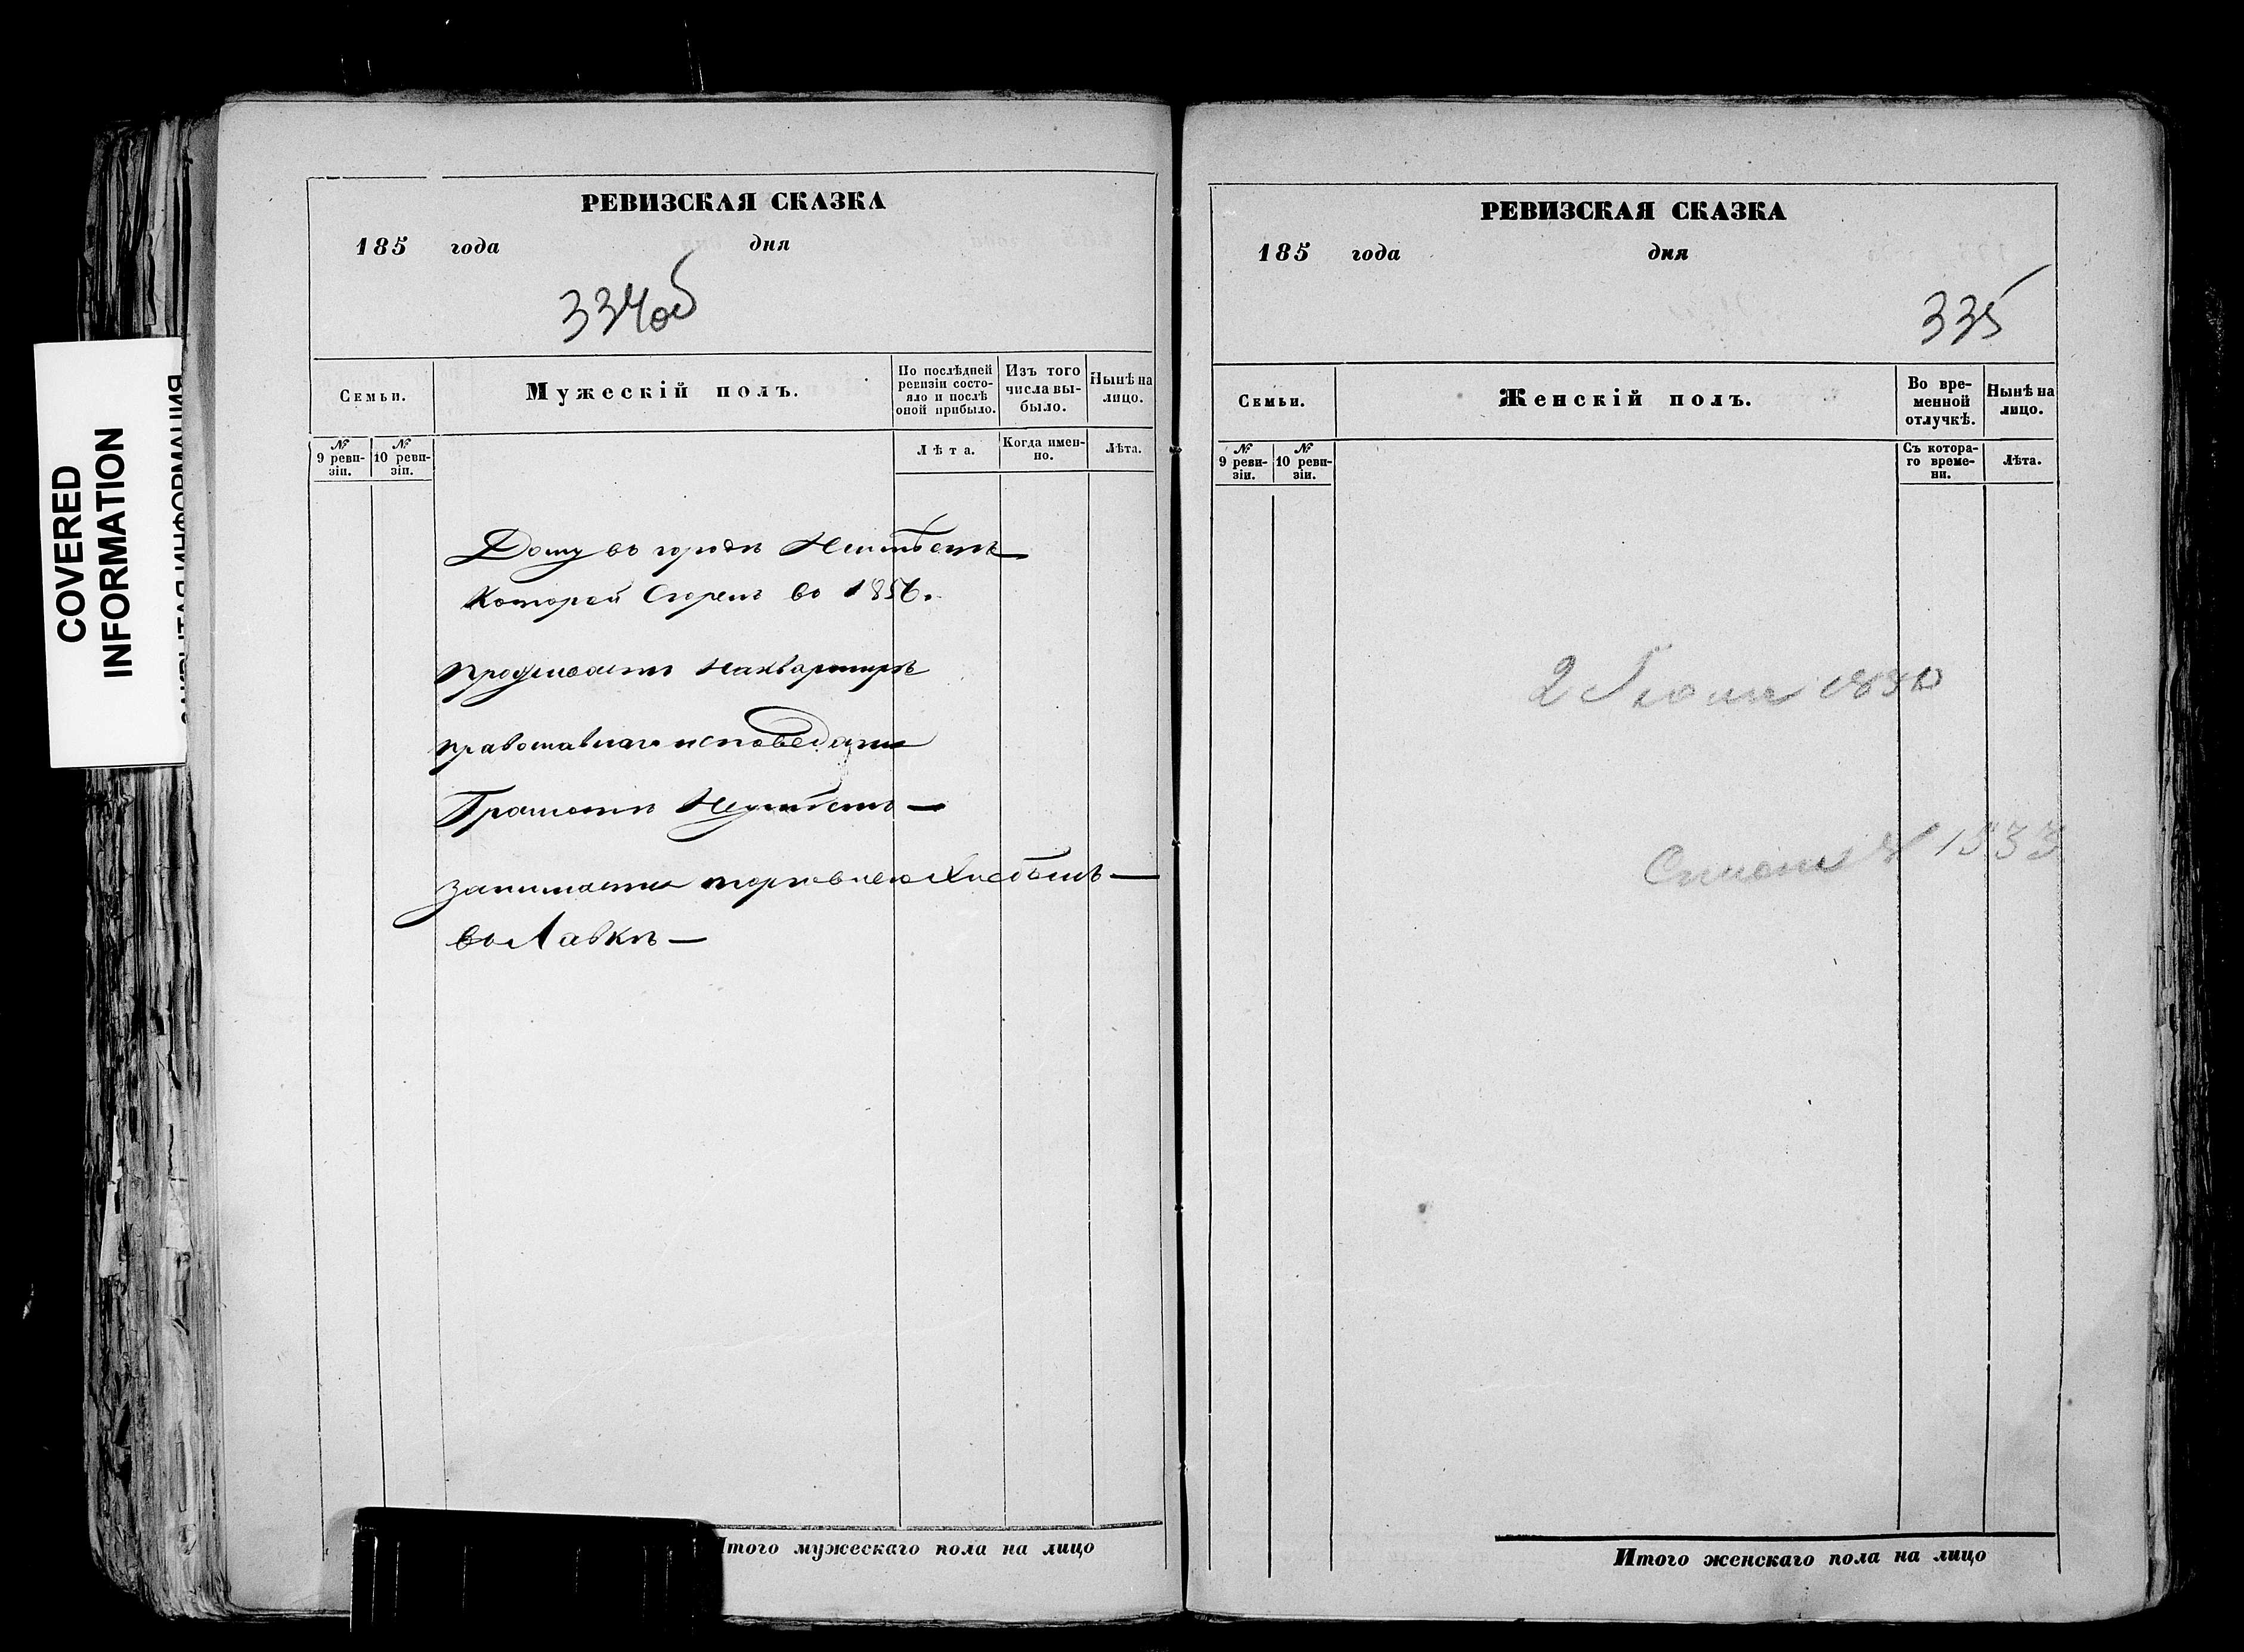 COVERED
INFORMATION
РЕВИЗСКАЯ СКАЗКА
185 года дня
334об
Семьи.
Мужескій полъ.
По послѣдней ревизіи состояло и послѣ оной прибыло.
Изъ того числа выбыло.
Нынѣ на лицо.
№ 9 ревизіи.
№ 10 ревизіи.
Лѣта.
Когда именно.
Лѣта.
Дому въ городѣ Неимѣетъ
Которой Сгорелъ въ 1856.
Проживаетъ Наквартирѣ
Православнаго исповеданія
Грамотѣ Неумѣетъ —
Занимается торговлею Хлебомъ —
въ Лавкѣ —
Итого мужескаго пола на лицо
РЕВИЗСКАЯ СКАЗКА
185 года дня
335
Семьи.
Женскій полъ.
Во временной отлучкѣ.
Нынѣ на лицо.
№ 9 ревизіи.
№ 10 ревизіи.
Съ котораго времени.
Лѣта.
2
Итого женскаго пола на лицо